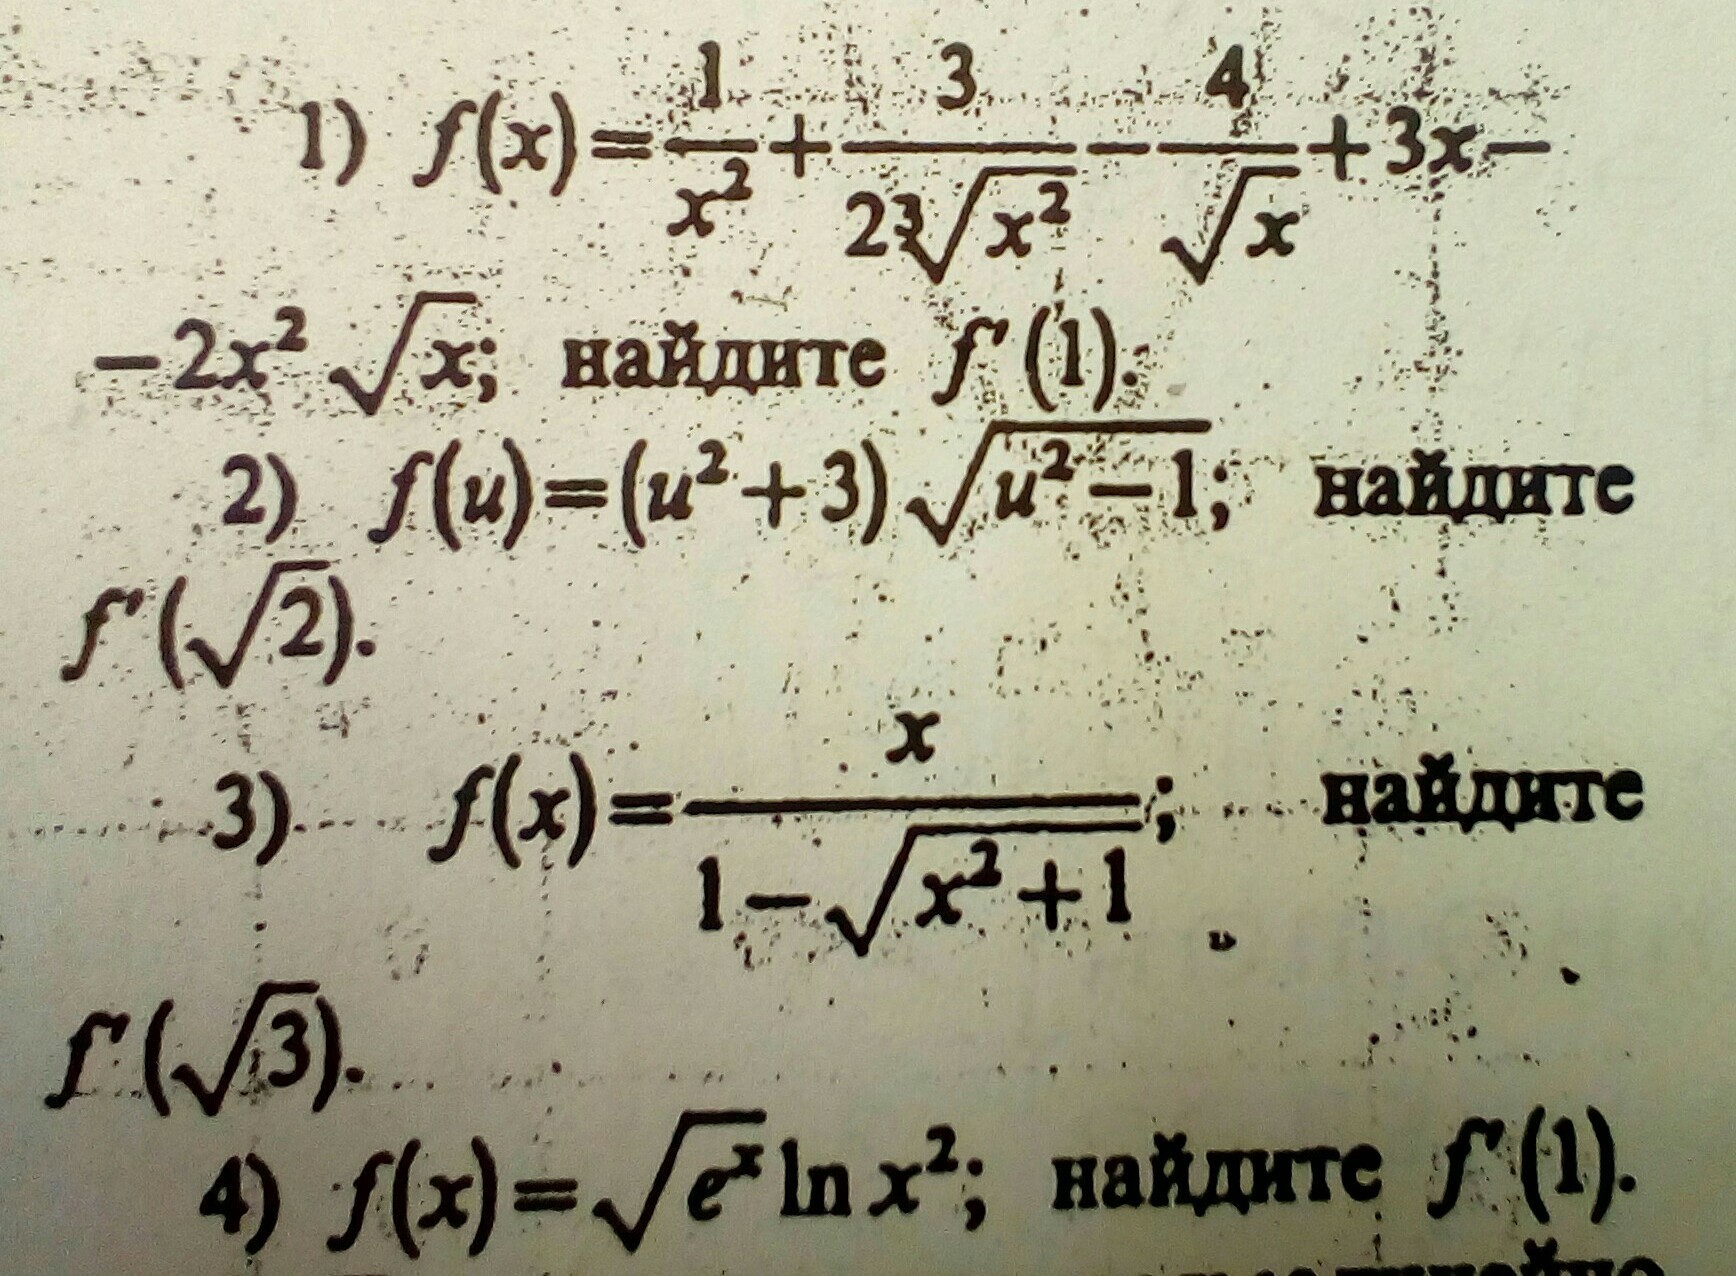 1) f(x)=1/x²+3/(2∛x²)−4/√x+3x−
−2x²√x; найдите f′(1).
2) f(u)=(u²+3)√(u²−1); найдите
f′(√2).
3) f(x)=x/(1−√(x²+1)); найдите
f′(√3).
4) f(x)=√eˣ ln x²; найдите f′(1).